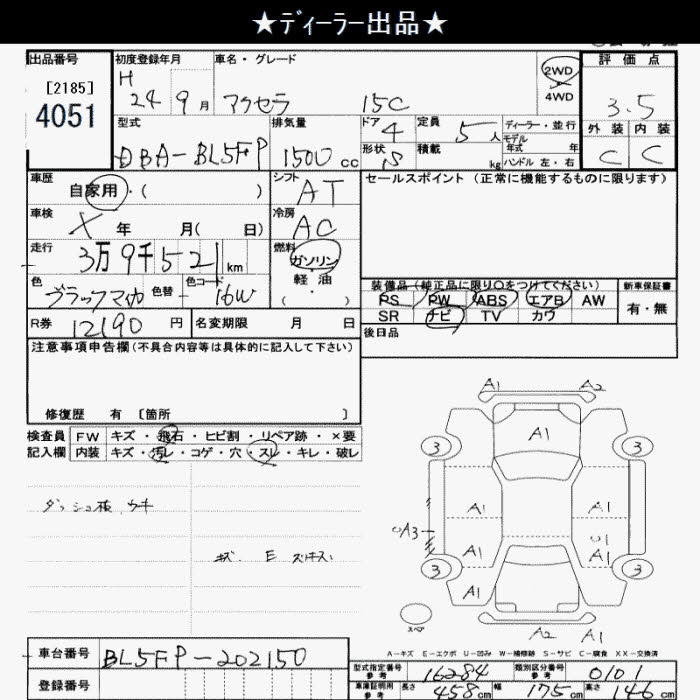 ★ディーラー出品★
出品番号
[2185]
4051
初度登録年月
H
24 9 月
車名・グレード
アクセラ 15C
2WD
4WD
評価点
3.5
外装 内装
C C
型式
DBA-BL5FP
排気量
1500 cc
ドア 4
形状 S
定員 5 人
積載 kg
ディーラー・並行
モデル
年式 年
ハンドル 左・右
車歴
自家用・( )
シフト
AT
セールスポイント (正常に機能するものに限ります)
車検
X 年 月( 日)
冷房
AC
走行
3万9千521 km
燃料
ガソリン
軽・油
( ・ )
色
ブラックマイカ
色替
色コード
16W
装備品(純正品に限り○をつけてください)
新車保証書
PS PW ABS エアB AW
SR ナビ TV カワ
有・無
R券 12190 円
名変期限 月 日
後日品
注意事項申告欄(不具合内容等は具体的に記入して下さい)
修復歴 有 〔箇所 〕
検査員
記入欄
FW キズ・飛石・ヒビ割・リペア跡・×要
内装 キズ・汚レ・コゲ・穴・スレ・キレ・破レ
ダッシュ板 ウキ
キズ、E
A1 A2
A1
3 3
A1 A1
A3
A1 A1
3 3
A1
スペア
A2 A1
A-キズ E-エクボ U-凹み W-補修跡 S-サビ C-腐食 XX-交換済
車台番号
BL5FP-202150
登録番号
型式指定番号
参考
16284
類別区分番号
参考
0101
車庫証明用
参考
長さ 458 cm 幅 175 cm 高さ 146 cm